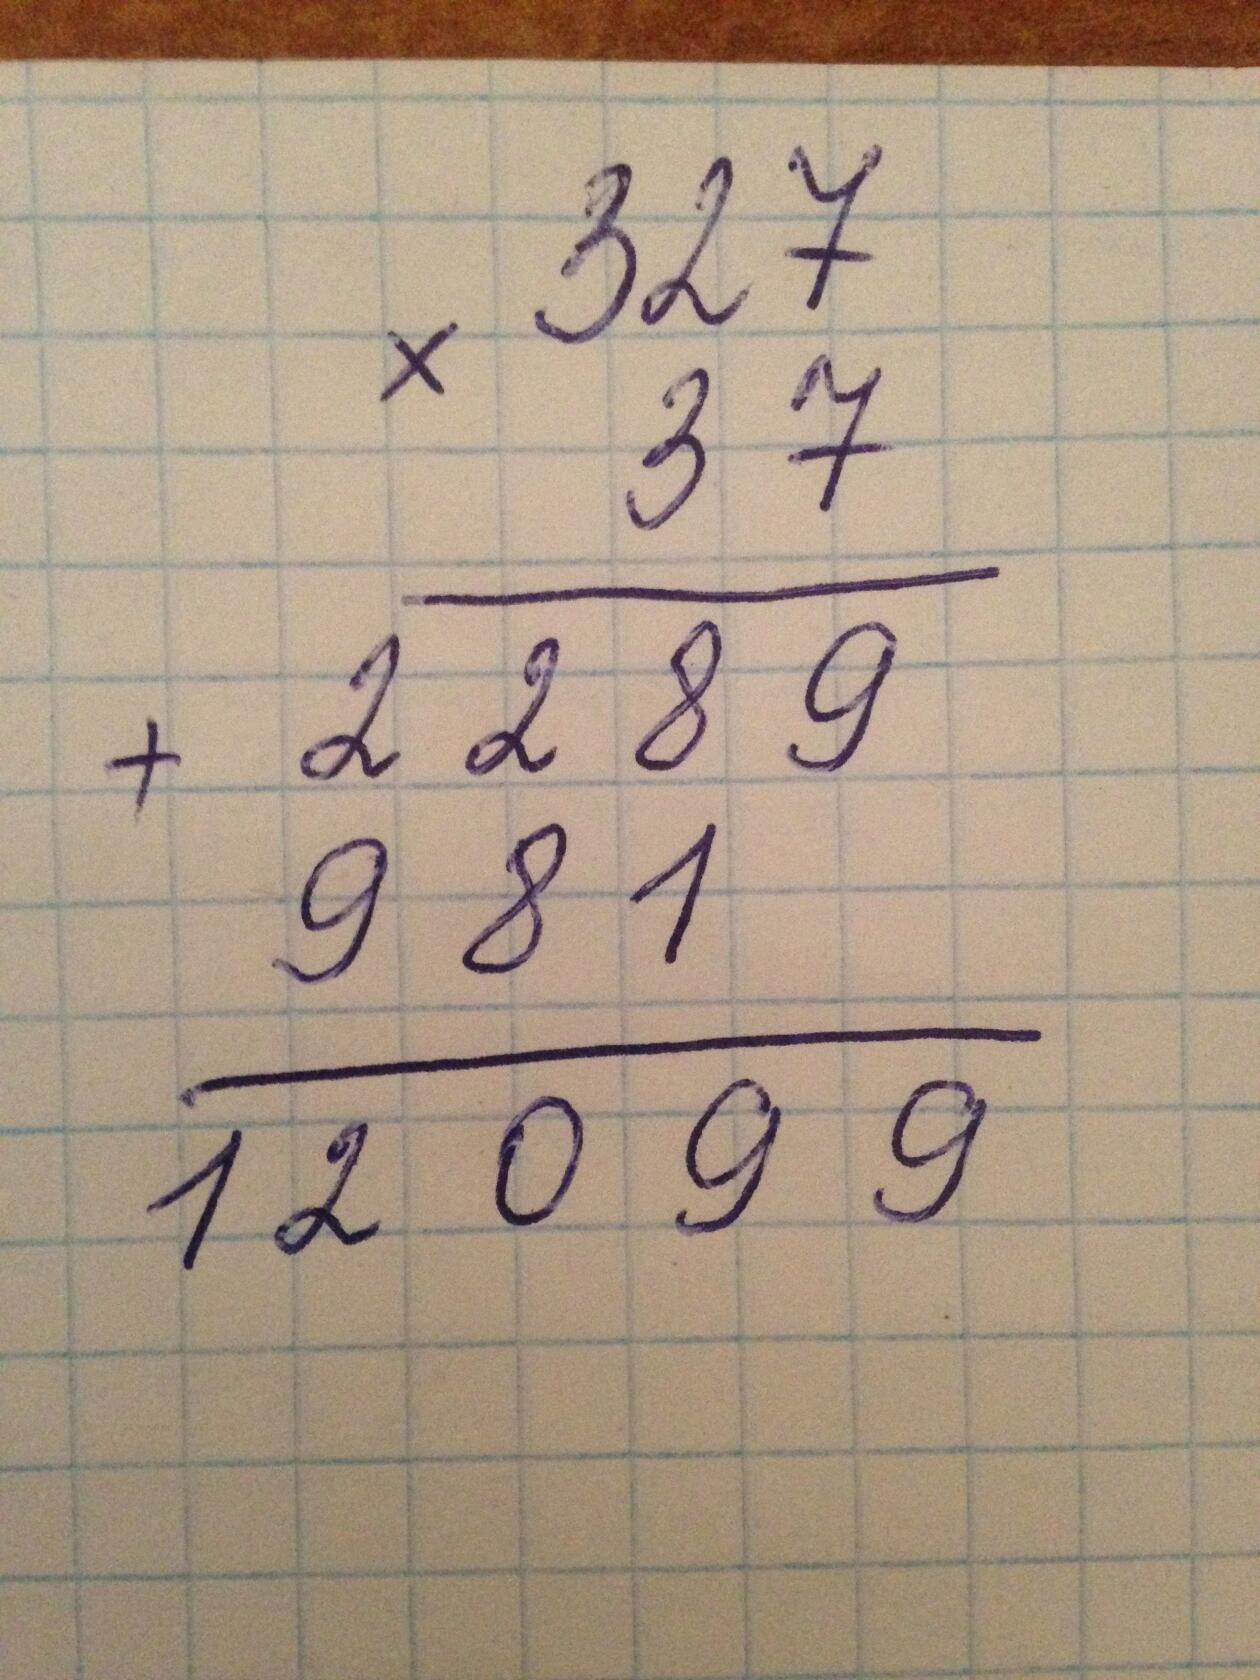 327
×
37
2289
+
981
12099